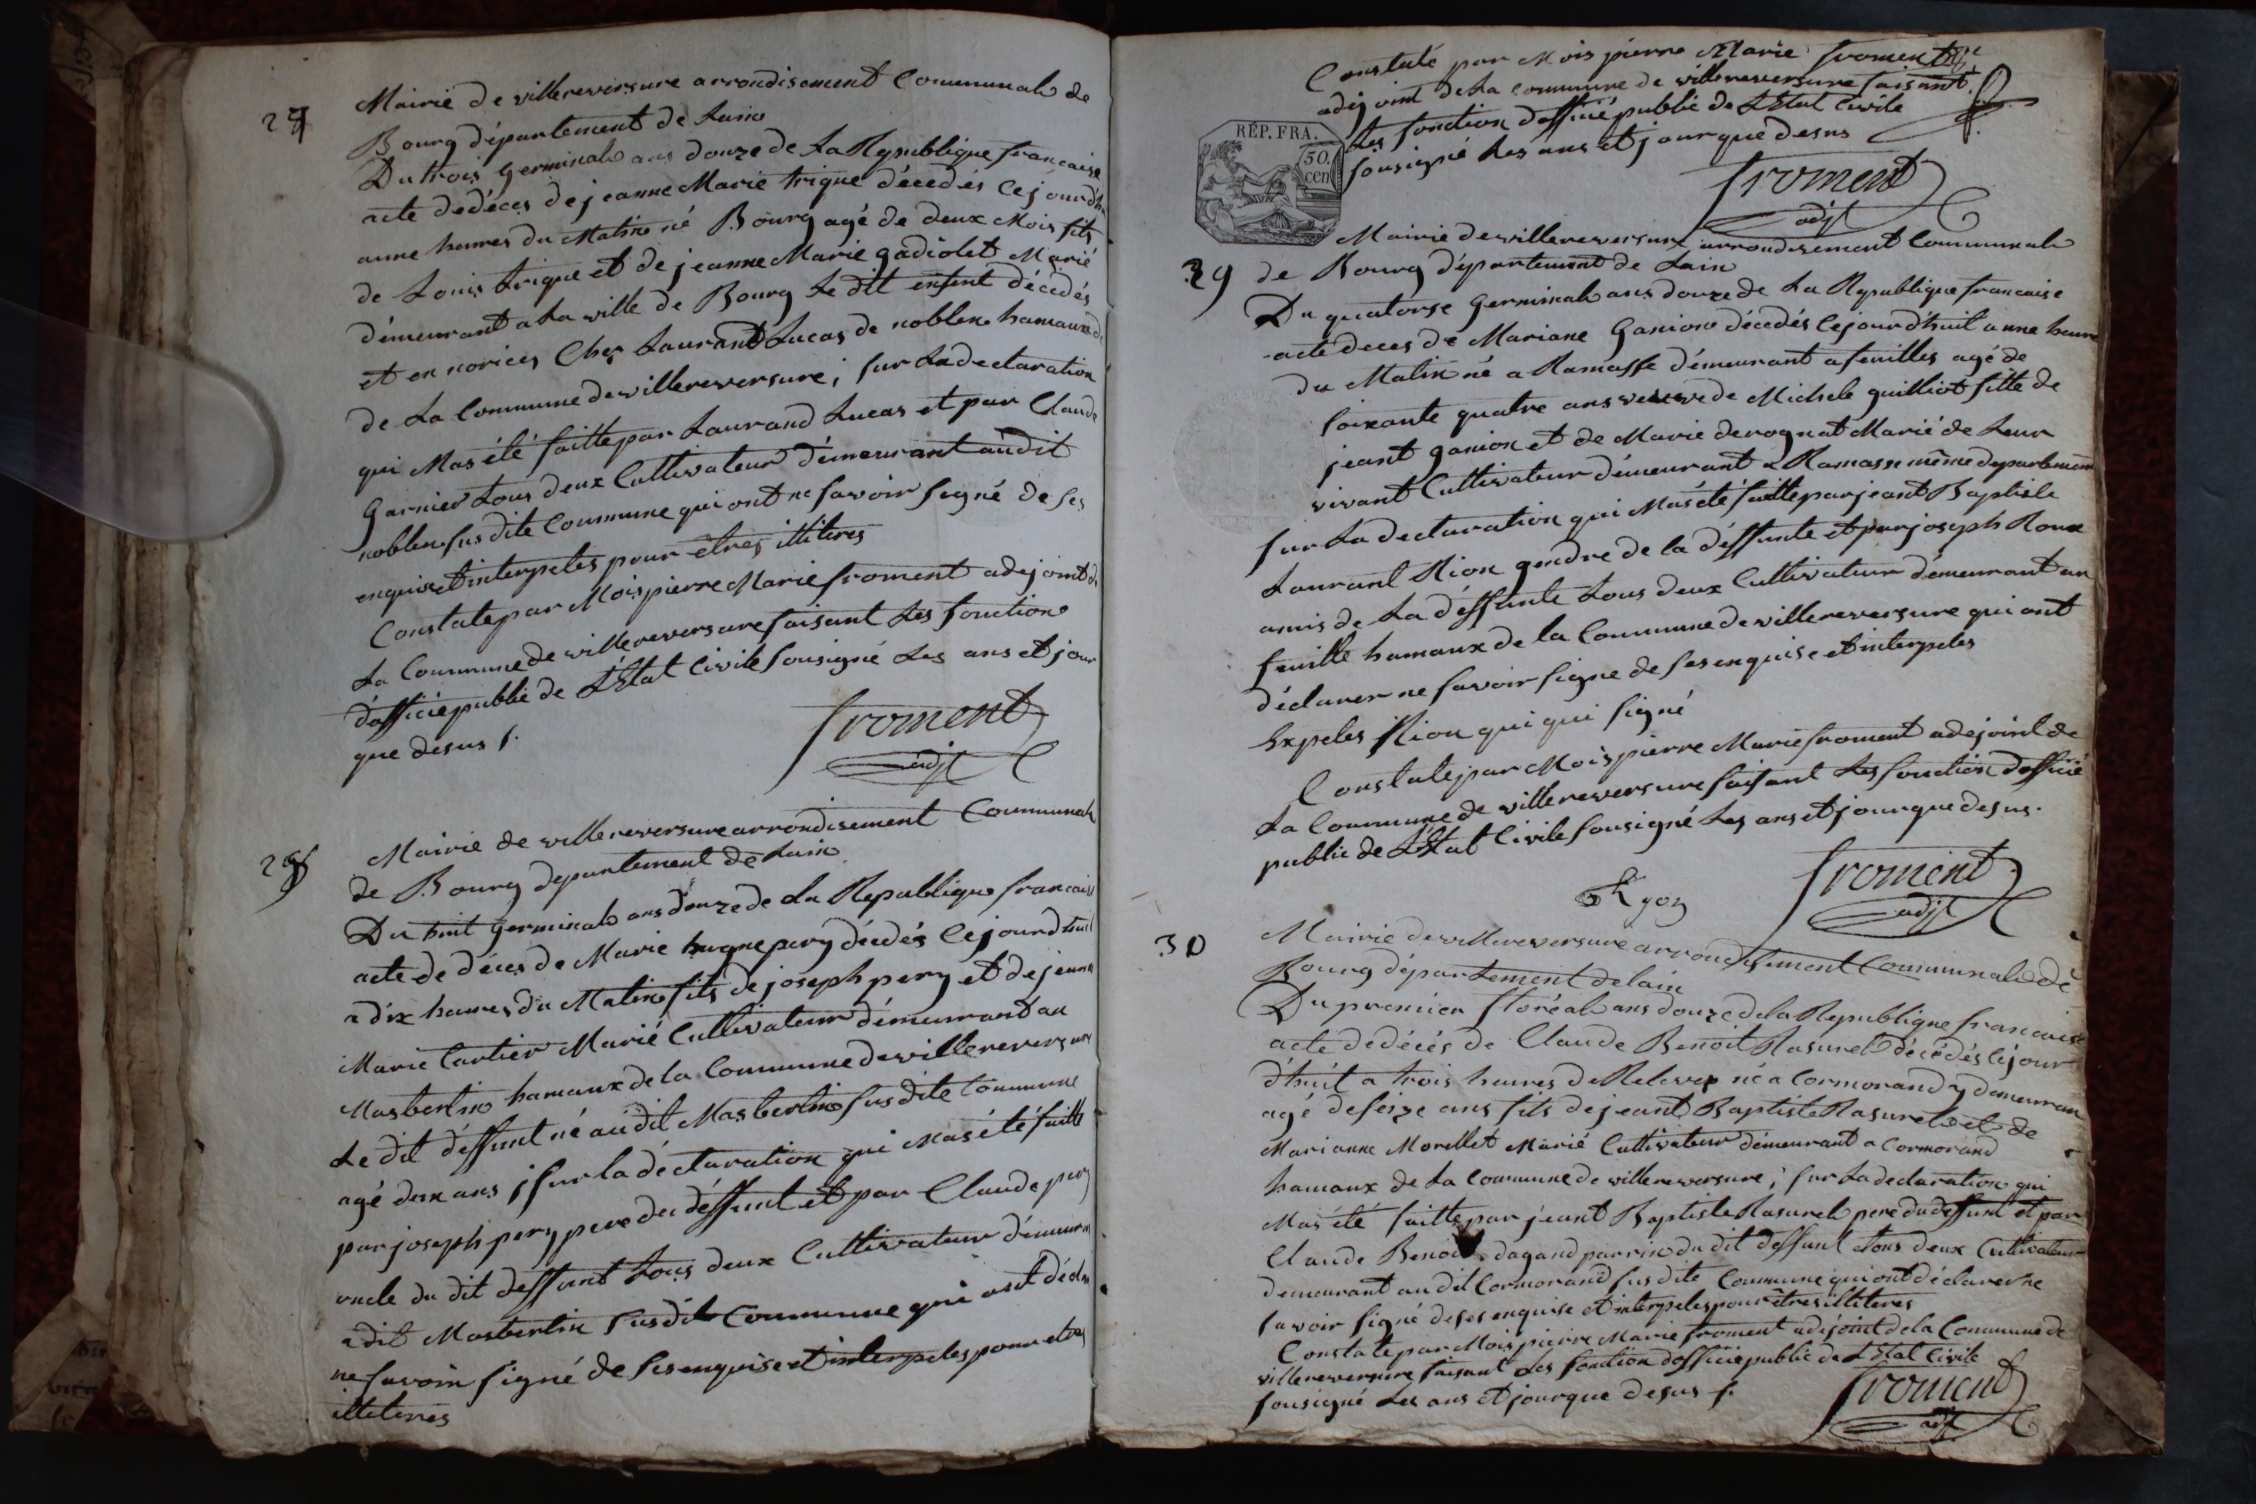 27
Mairie de villereversure arrondisement Communal de
Bourg département de Lain
Du trois Germinal ans douze de La Republique francaise
acte dedéces de jeanne Marie trique décedés Cejourdh
aune heures du Matin né Bourg agé de deux Mois fils
de Louis trique et de jeanne Marie gadiolet Marié
démeurant a La ville de Bourg Le dit enfent décédés
et en norices Chez Laurant Lucas de noblen hamaux de
de La Commune de villereversure; sur La declaration
qui Mas été faitte par Laurand Lucas et par Claude
Garnier tous deux Cultivateur démeurant audit
noblen susdite Commune qui ont ne savoir signé de ses
enquise et interpeles pour êtres illiteres
Constate par Mois pierre Marie froment adejoint de
La Commune de villereversure faisant Les fonction
d'officié publie de L'Etat Civile sousigné Les ans et jour
que desus
froment
adjt
28
Mairie de villereversure arrondisement Communal
de Bourg departement de Lain
Du huit Germinal ans douze de La Republique francais
acte de déces de Marie hugne pery décédés Cejourdhuit
a dix heures du Matin fils de joseph pery et de jeanne
Marie Cartier Marié Cultivateur démeurant au
Masbertin hamaux de la Commune de villereversure
Le dit déffunt né audit Masbertin susdite Commune
agé deux ans sur la déclaration qui Mas été faitte
par joseph pery pere du déffunt et par Claude pery
oncle du dit deffunt tous deux Cultivateur démeurn
adit Masbertin susdite Commune qui ont décla
ne savoir signé de ses enquise et interpeles pour etres
illiteres
Constaté par Mois pierre Marie froment
adejoint de La commune de villereversure faisant
Les fonction d'officié publie de L'Etat Civile
sousigné Les ans et jour que desus
RÉP. FRA.
50.
cen
froment
adjt
29
Mairie de villereversure arrondisement Communal
de Bourg département de Lain
Du quatorse Germinal ans douze de La Republique francaise
acte deces de Mariane Ganion décédés Cejourdhuit a une heure
du Matin né a Ramasse démeurant a feuilles agé de
soixante quatre ans veuve de Michele guilliot fille de
jeant ganion et de Marie derognat Marié de Leur
vivant Cultivateur démeurant a Ramasse même departement
sur La declaration qui Mas été faitte par jeant Baptiste
Laurant Rion gendre de la déffunte et par joseph Roux
amis de La déffunte tous deux Cultivateur démeurant au
feuille hamaux de la Commune de villereversure qui ont
déclarer ne savoir signe de ses enquise et interpeles
Expeles Rion qui qui signé
Constate par Mois pierre Marie froment adejoint de
La Commune de villereversure faisant Les fonction d'officié
public de L'Etat Civile sousigné Les ans et jour que desus.
Ryon
froment
adjt
30
Mairie de villereversure arrondisement Communal de
Bourg département de lain
Du premier floréal ans douze de la Republique francaise
acte dédécés de Claude Benoit Rasurel décédés Cejour
d'huit a trois heures de Relevés né a Cormorand y demeuran
agé de seize ans fils de jeant Baptiste Rasurel et de
Marianne Morellet Marié Cultivateur démeurant a Cormorand
hamaux de La Commune de villereversure; sur La declaration qui
Mas été faitte par jeant Baptiste Rasurel pere du deffunt et par
Claude Benoit dagand parrin du dit deffunt tous deux Cultivateur
demeurant au dit Cormorand susdite Commune qui ont déclarer ne
savoir signé de ses enquise et interpeles pour êtres illiteres
Constate par Mois pierre Marie froment adejoint de la Commune de
villereversure faisant Les fonction d'officié public de L'Etat Civile
sousigné Les ans et jour que desus
froment
adjt